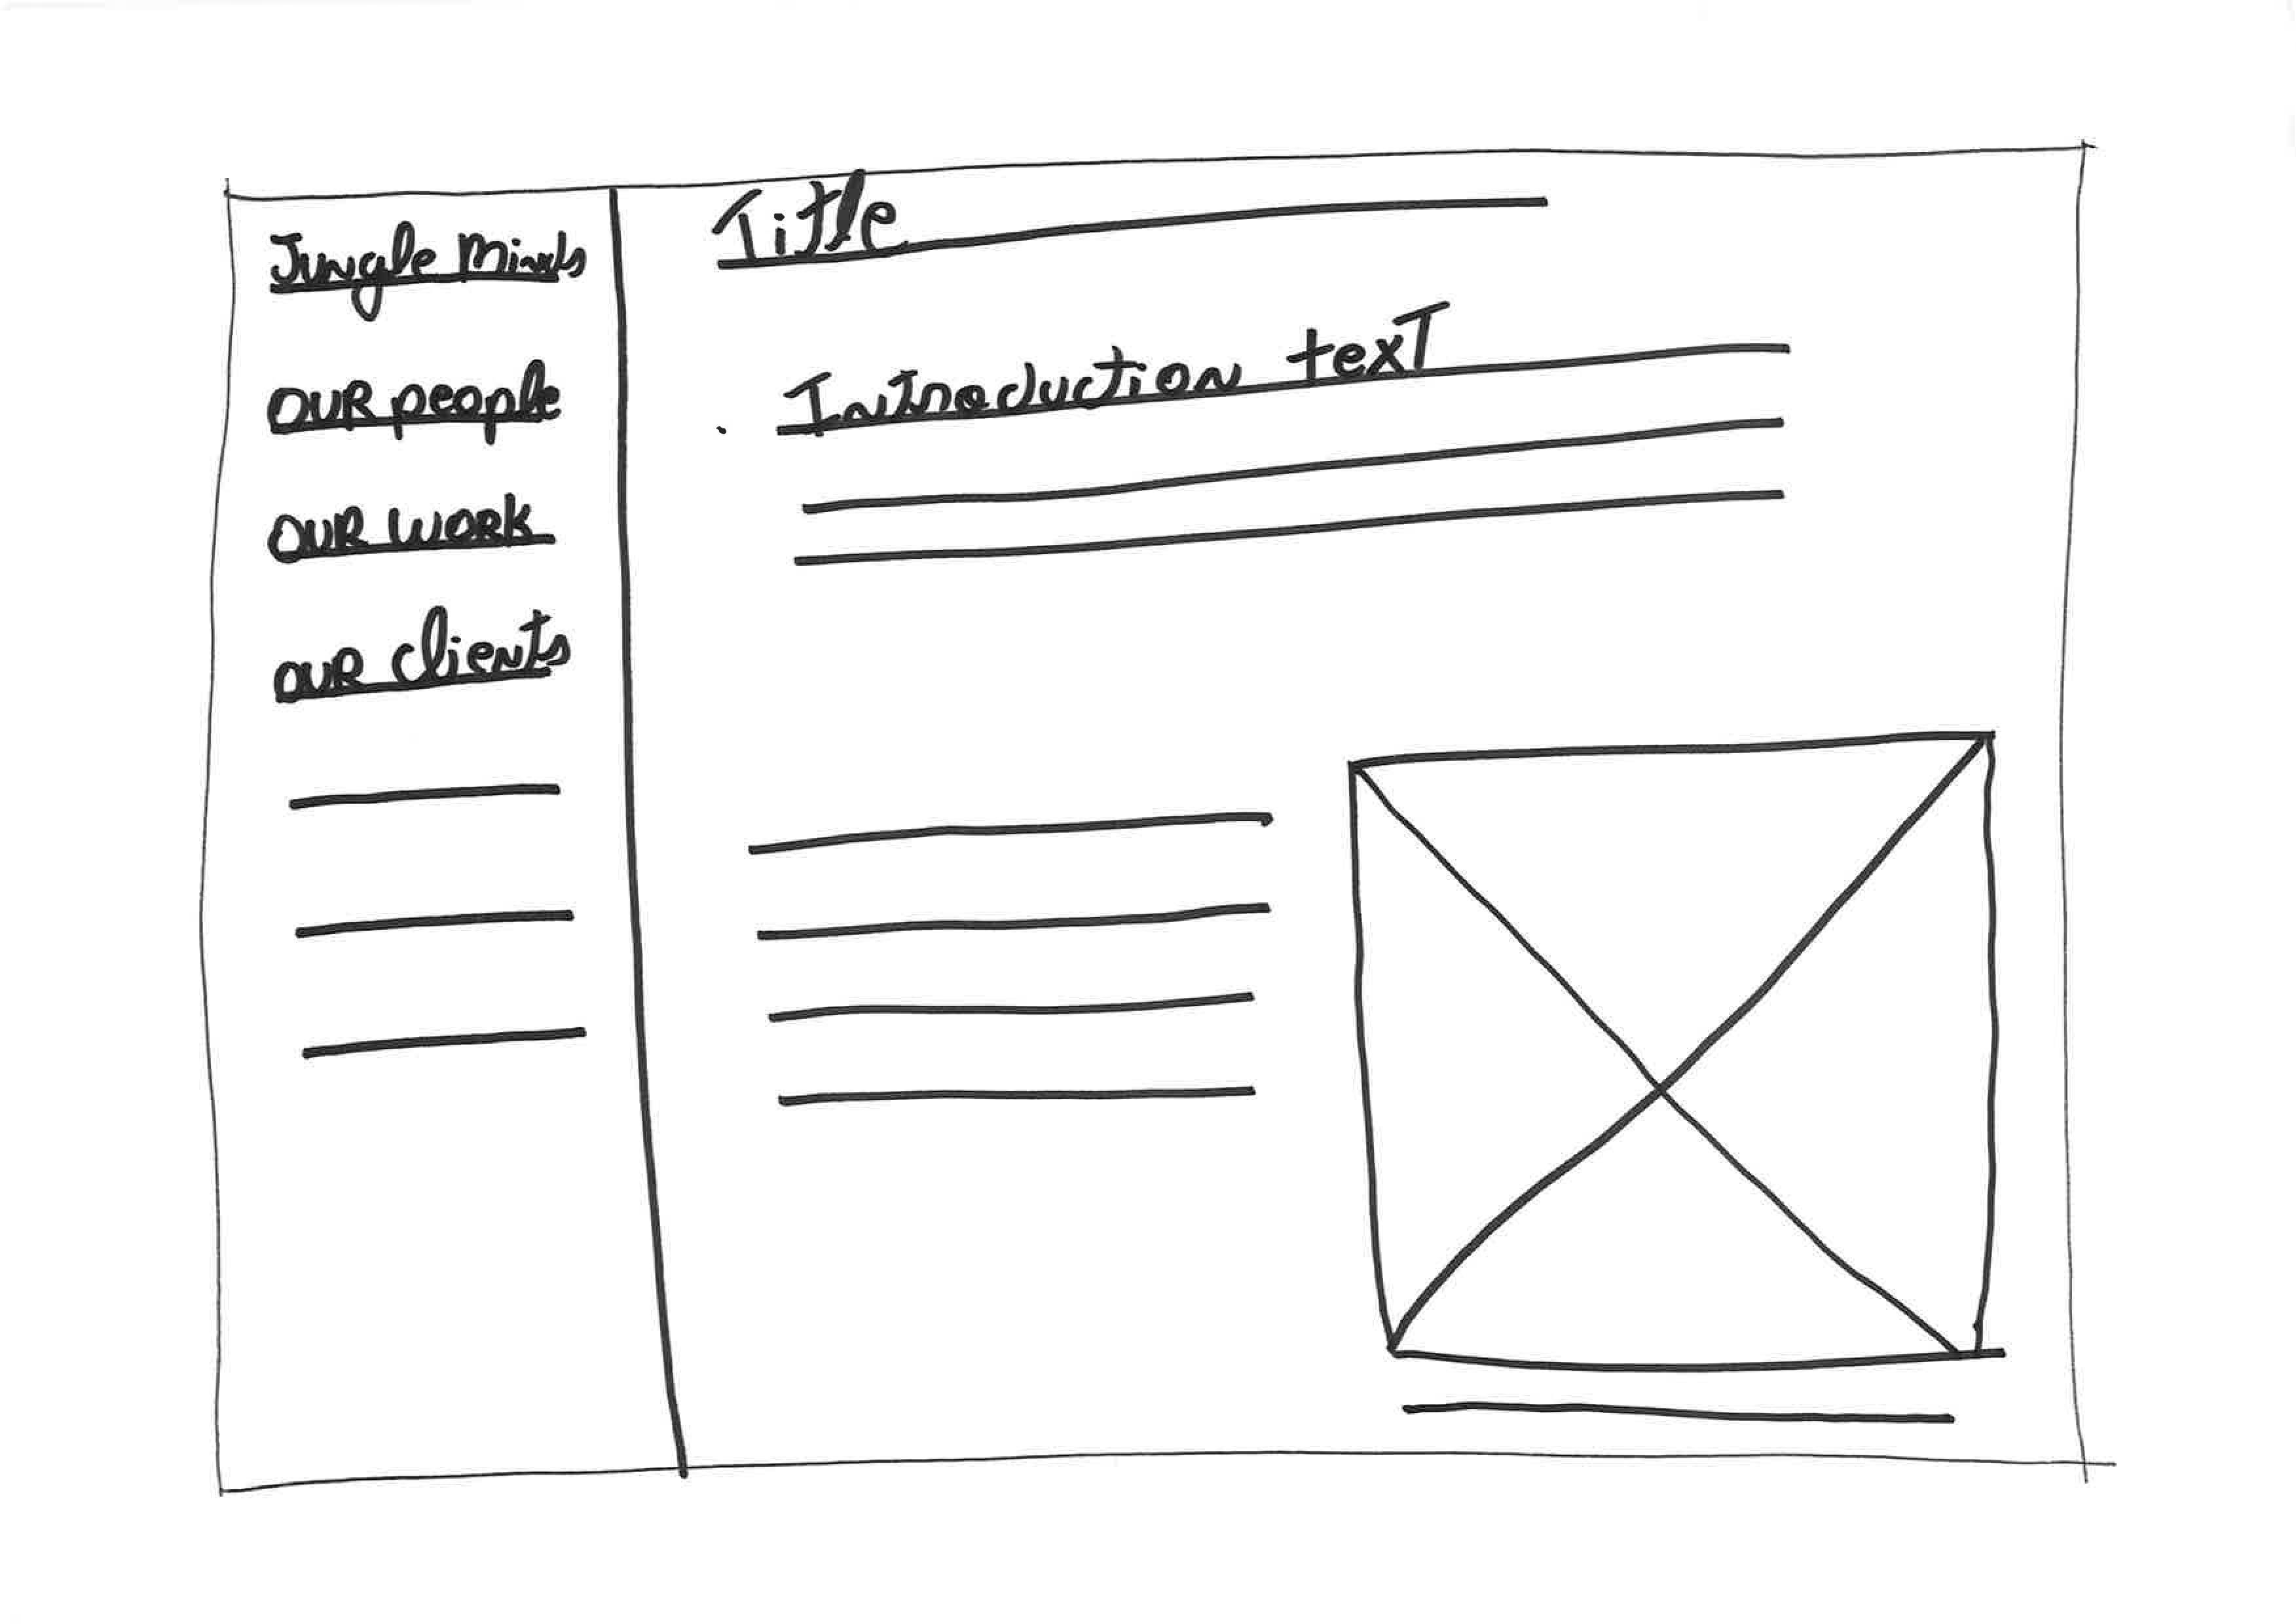 Jungle Minds
OUR people
OUR WORK
OUR clients
Title
Introduction text